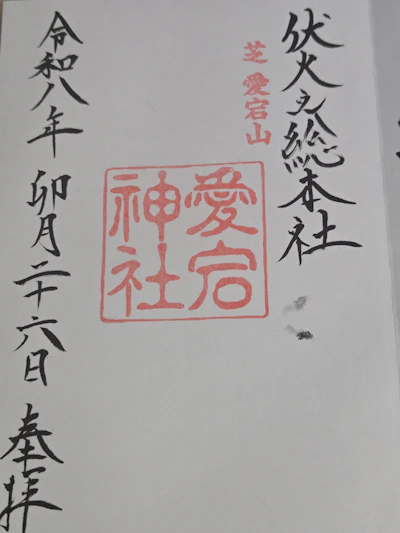 伏火之総本社
芝 愛宕山
愛宕
神社
令和八年 卯月二十六日 奉拝